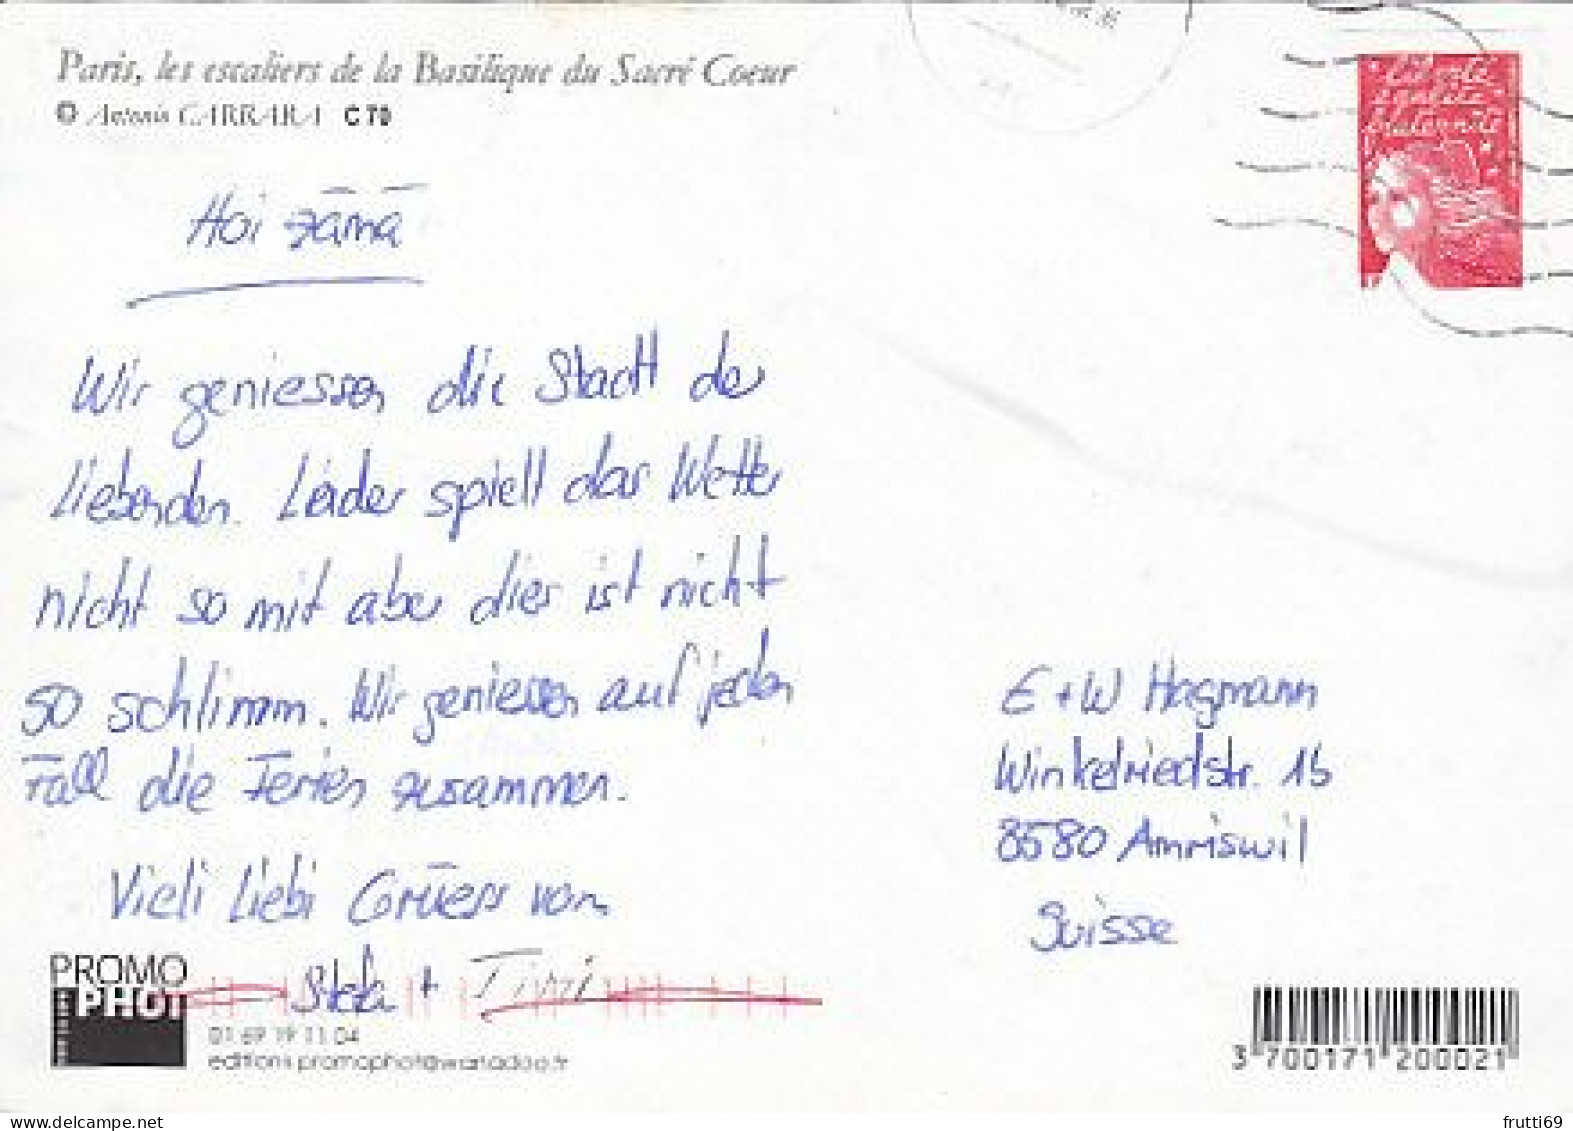 Paris, les escaliers de la Basilique du Sacré Coeur
© Antonio CARRARA C 70
Liberté
égalité
fraternité
Hoi zämä
Wir geniessen die Stadt der
Liebenden. Leider spielt das Wetter
nicht so mit aber dies ist nicht
so schlimm. Wir geniessen auf jeden
Fall die Ferien zusammen.
Vieli liebi Grüess von
Stefa + Timi
E + W Hagmann
Winkelriedstr. 16
8580 Amriswil
Suisse
PROMO
PHOT
01 69 19 11 04
editions.promophot@wanadoo.fr
3 700171 200021
delcampe.net
frutti69